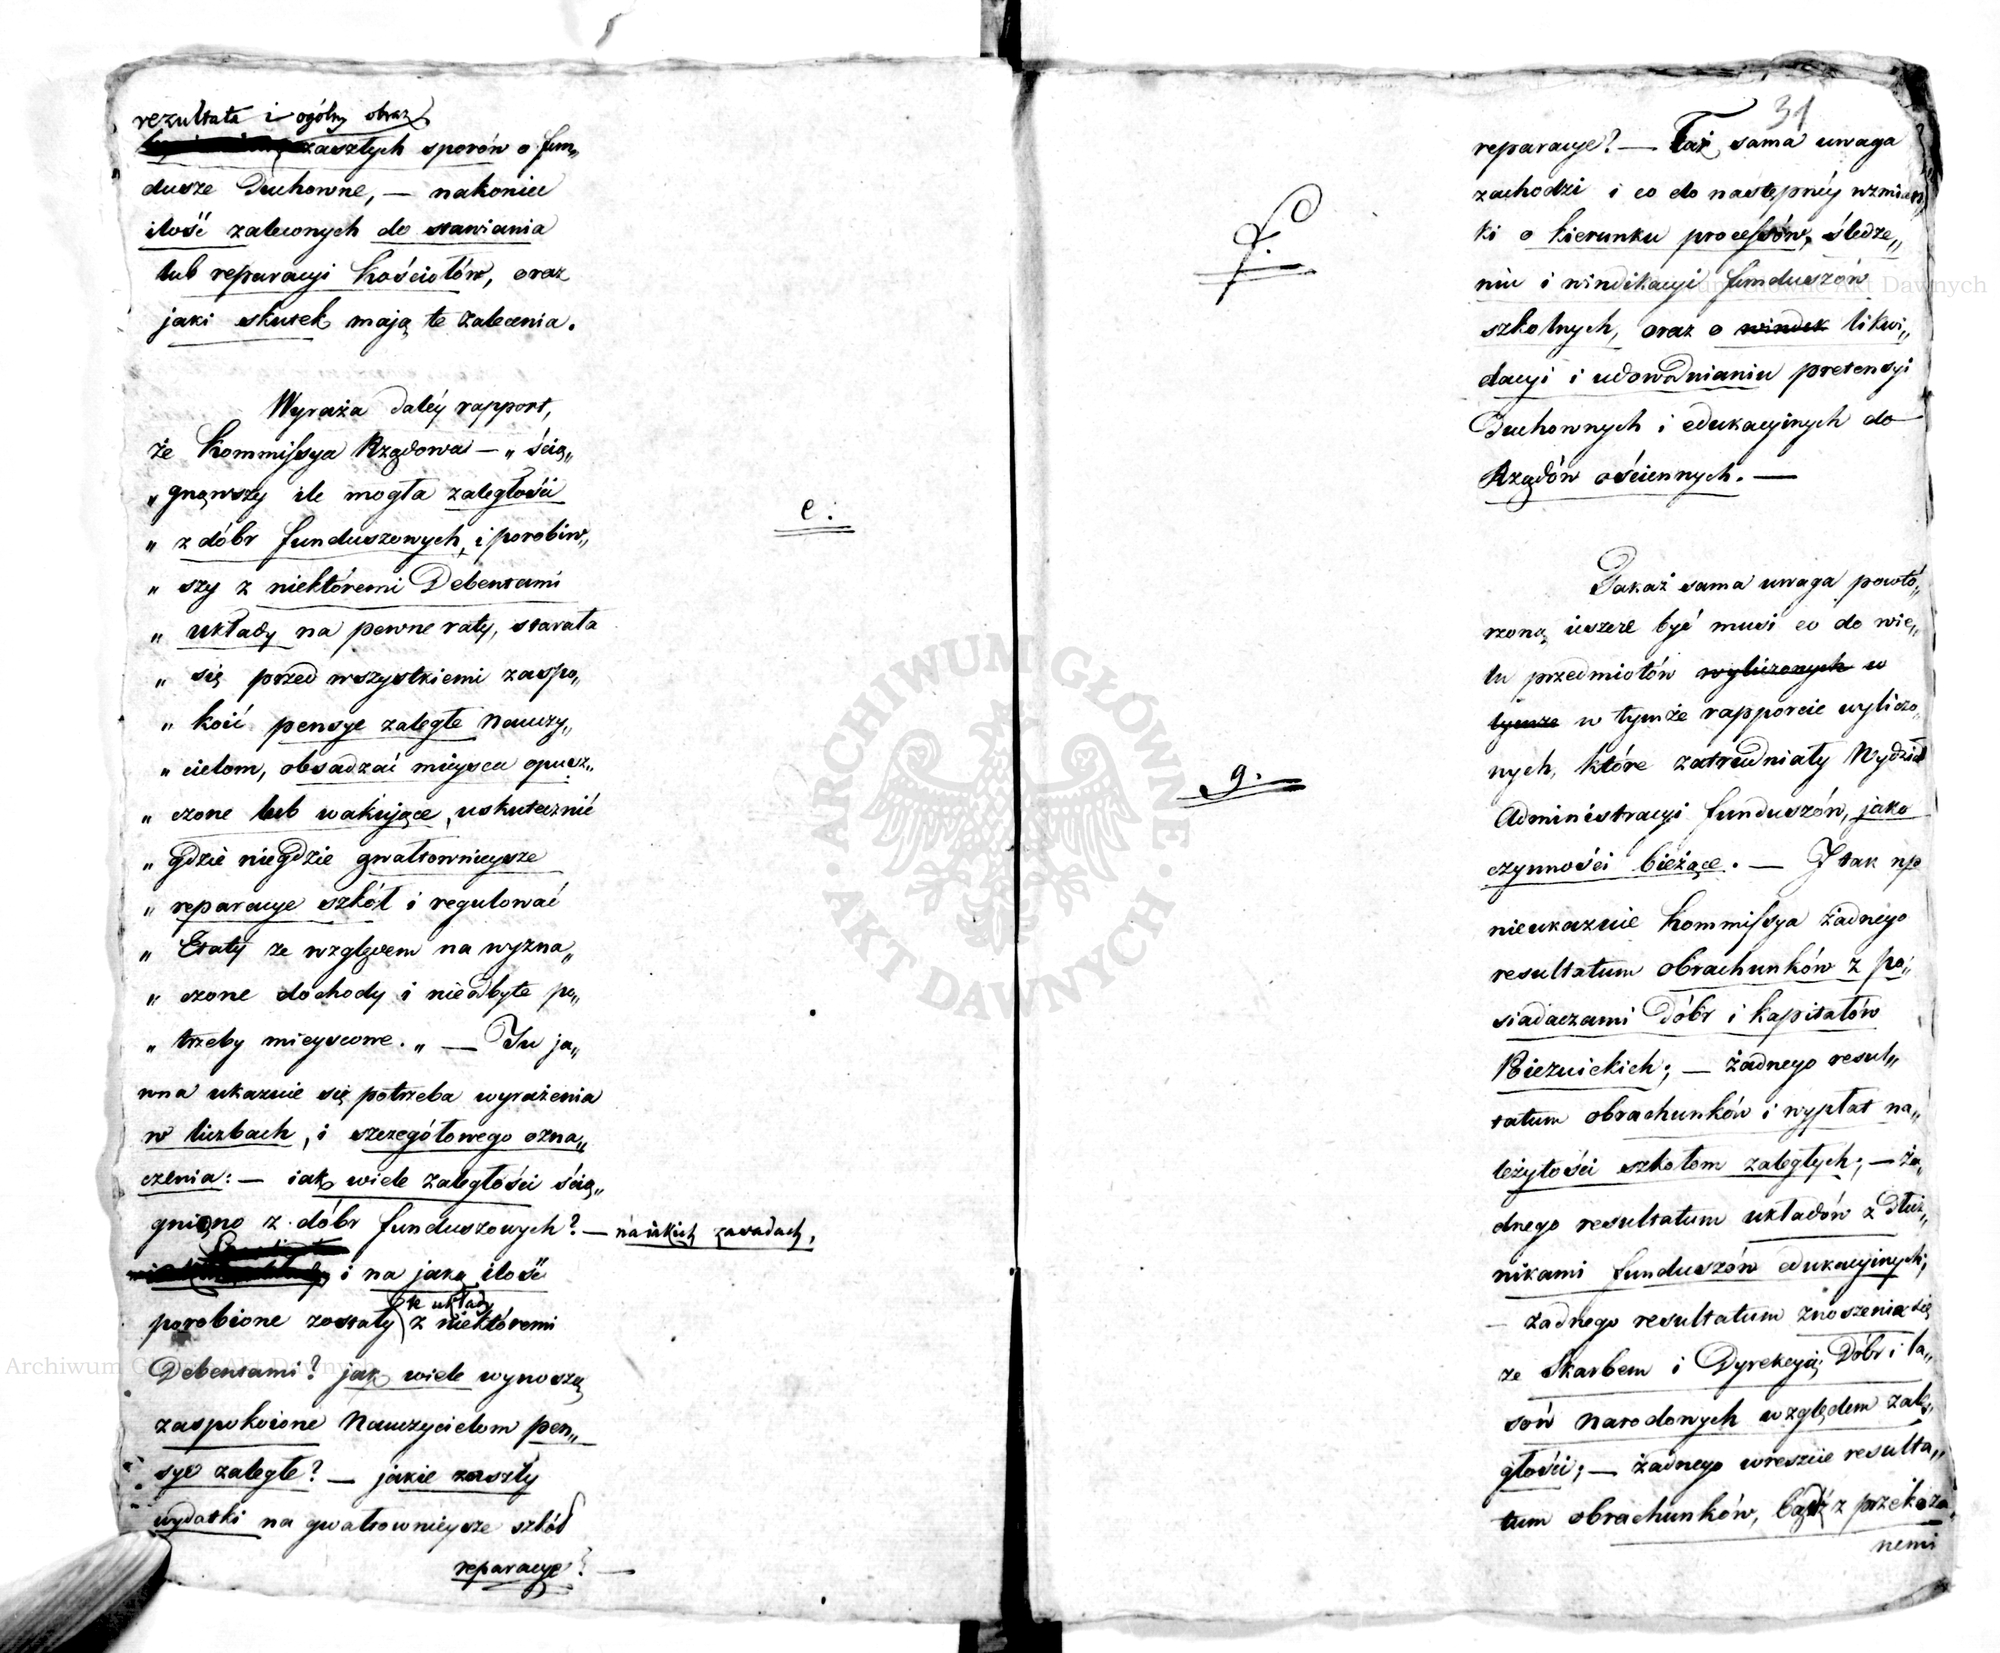 rezultata i ogólny obraz
zaszłych sporów o fun„
dusze Duchowne, — nakoniec
ilość zaleconych do stawiania
lub reparacyi Kościołów, oraz
jaki skutek mają te zalecenia.
Wyraża daléy rapport,
że Kommissya Rządowa — „ ścią„
„ gnąwszy ile mogła zaległości
„ z dóbr funduszowych, i porobiw„
„ szy z niektóremi Debentami
„ układy na pewne raty, starała
„ się przed wszystkiemi zaspo„
„ koić pensye zaległe Nauczy„
„ cielom, obsadzać mieysca opusz„
„ czone lub wakujące, uskutecznić
„ gdzie niegdzie gwałtownieysze
„ reparacye szkół i regulować
„ Etaty ze względem na wyzna„
„ czone dochody i nieodbyte po„
„ trzeby mieyscowe. „ — Tu ja„
wna ukazuie się potrzeba wyrażenia
w liczbach, i szczegółowego ozna„
czenia: — iak wiele zaległości ścią„
gniono z dóbr funduszowych? — na iakich zasadach,
i na jaką ilość
te układy
porobione zostały z niektóremi
Debentami? jak wiele wynoszą
zaspokoione Nauczycielom pen„
sye zaległe? — jakie zaszły
wydatki na gwałtownieysze szkół
reparacye? —
e.
31
reparacye? — Taż sama uwaga
zachodzi i co do następnéy wzmian„
ki o kierunku processów, śledze„
niu i windikacyi funduszów
szkolnych, oraz o windik likwi„
dacyi i udowodnianiu pretensyi
Duchownych i edukacyinych do
Rządów ościennych. —
f.
Takaż sama uwaga powtó„
rzoną ieszcze być musi co do wie„
lu przedmiotów wyliczonych w
tymże w tymże rapporcie wyliczo„
nych, które zatrudniały Wydział
Administracyi funduszów, jako
czynności bieżące. — I tak np
nieukazuie Kommissya żadnego
resultatum obrachunków z po„
siadaczami Dóbr i kapitałów
Pojezuickich; — żadnego resul„
tatum obrachunków i wypłat na„
leżytości szkołom zaległych; — ża„
dnego resultatum układów z Dłuż„
nikami funduszów edukacyinych;
— żadnego resultatum znoszenia się
ze Skarbem i Dyrekcyą Dóbr i la„
sów narodowych względem zale„
głości; — żadnego wreszcie resulta„
tum obrachunków, bądź z przekaza„
nemi
g.
ARCHIWUM GŁÓWNE AKT DAWNYCH
Archiwum Główne Akt Dawnych
Archiwum Główne Akt Dawnych